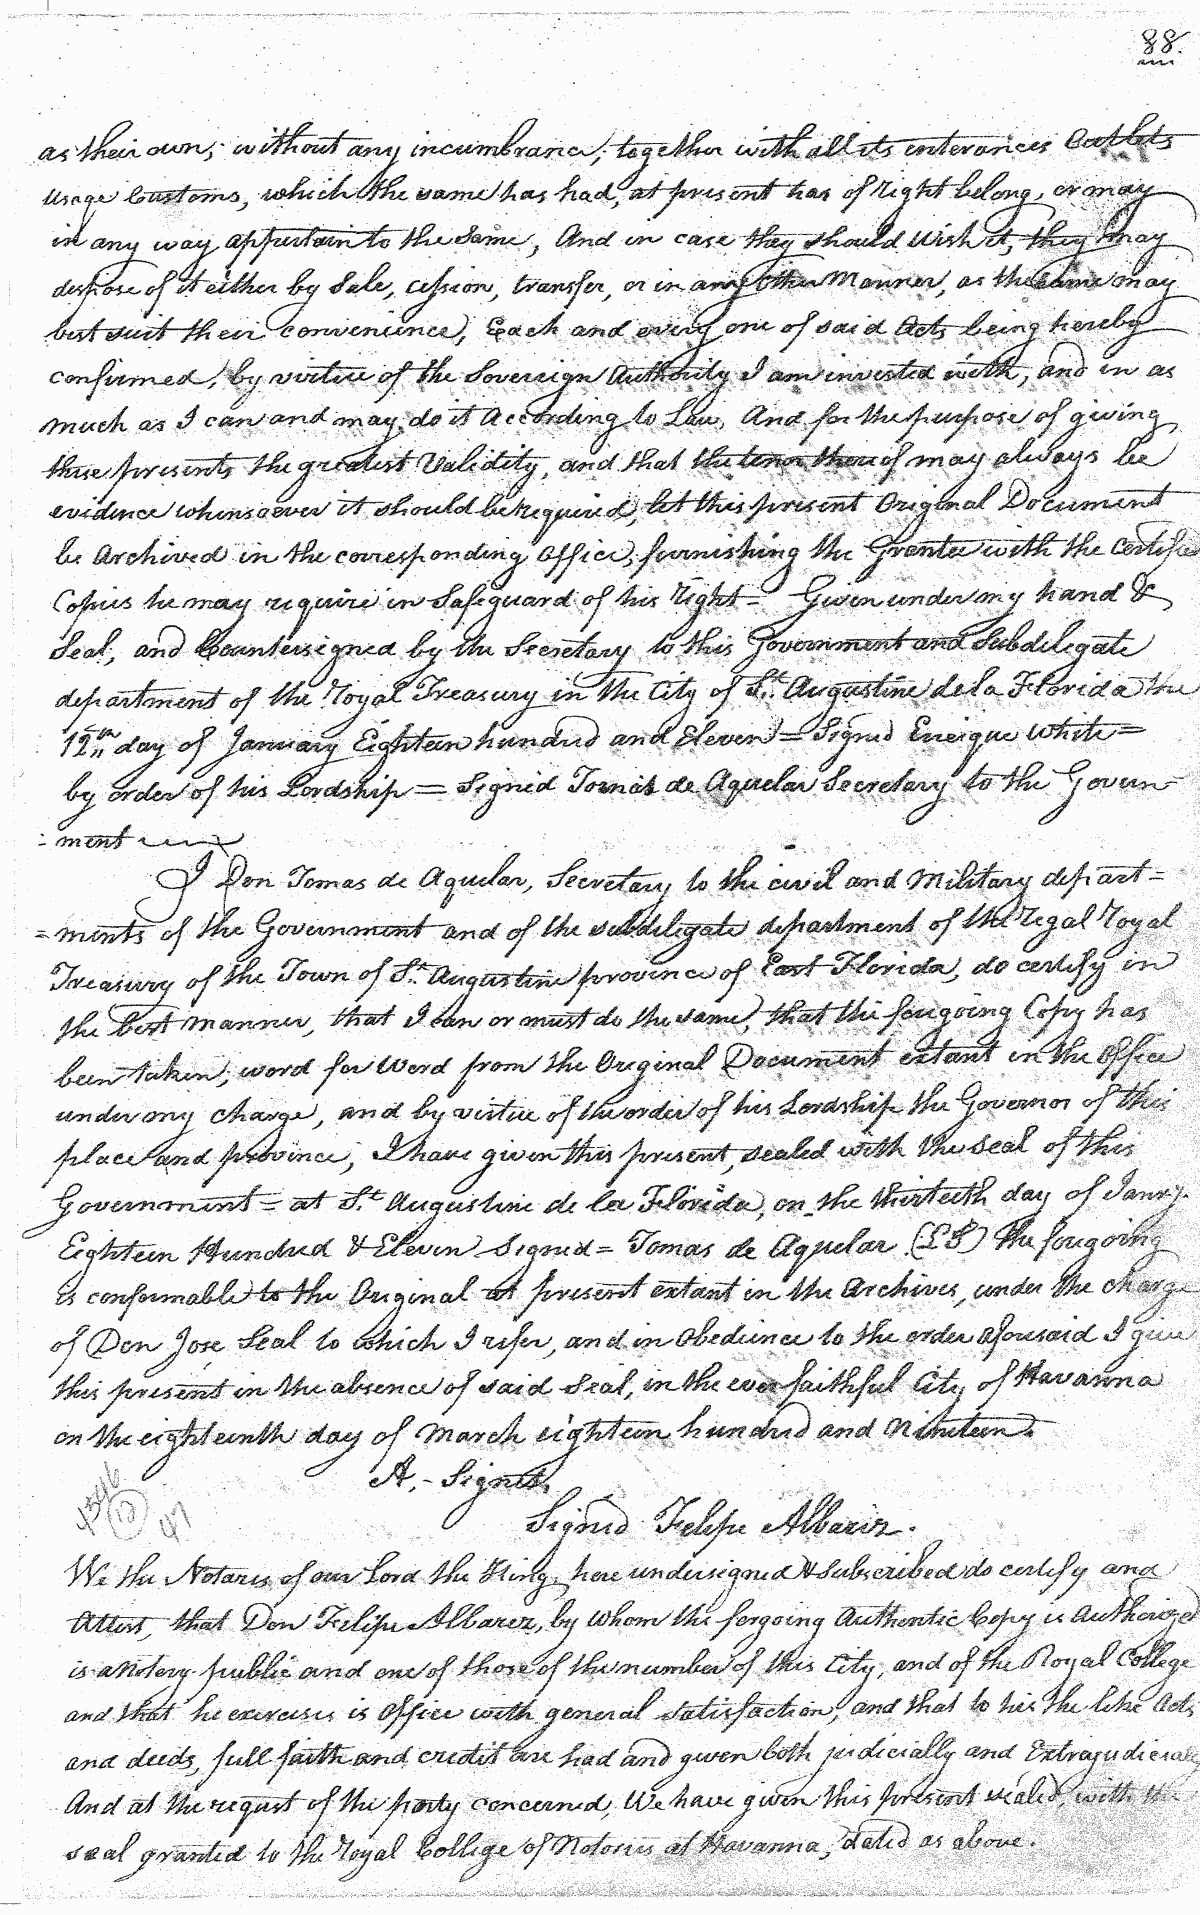 88.
as their own; without any incumbrance, together with all its enterances Outlets
usage Customs, which the same has had, at present has of right belong, or may
in any way appertain to the Same, And in case they should Wish it, they may
dispose of it either by Sale, cession, transfer, or in any other Manner, as the same may
best suit their convenience, Each and every one of said Acts being hereby
confirmed, by virtue of the Sovereign Authority I am invested with, and in as
much as I can and may do it According to Law, And for the purpose of giving
these presents the greatest Validity, and that the tenor thereof may always be
evidence whensoever it should be required, let this present Original Document
be Archived in the corresponding Office, furnishing the Grantee with the Certified
Copies he may require in Safeguard of his Right = Given under my hand &
Seal, and Countersigned by the Secretary to this Government and Subdelegate
department of the Royal Treasury in the City of St. Augustine de la Florida the
12th day of January Eighteen hundred and Eleven = Signed Enrique White =
by order of his Lordship = Signed Tomas de Aguelar Secretary to the Govern-
- ment
I Don Tomas de Aguelar, Secretary to the civil and Military depart =
= ments of the Government and of the subdelegate department of the Regal Royal
Treasury of the Town of St. Augustine province of East Florida, do certify in
the best manner, that I can or must do the same, that the forgoing Copy has
been taken, word for Word from the Original Document extant in the Office
under my charge, and by virtue of the order of his Lordship the Governor of this
place and province, I have given this present, sealed with the seal of this
Government = at St. Augustine de la Florida, on the thirteeth day of Janry.
Eighteen Hundred & Eleven Signed = Tomas de Aguelar (LS) The forgoing
is conformable to the Original at present extant in the Archives, under the charge
of Don Jose Seal to which I refer, and in Obedience to the order aforesaid I give
this present in the absence of said Seal, in the ever faithful City of Havanna
on the eighteenth day of March eighteen hundred and Nineteen.
A.- Signet.
Signed Felipe Albarez.
We the Notaries of our Lord the King, here undersigned & Subscribed do certify and
Attest, that Don Felipe Albarez, by whom the forgoing Authentic Copy is Authorized
is a Notery public and one of those of the number of this City, and of the Royal College
and that he exercises is Office with general satisfaction, and that to his the like Acts
and deeds, full faith and credit are had and given both judicially and Extrajudicially
And at the request of the party concerned, We have given this present sealed, with the
seal granted to the Royal College of Notaries at Havanna, dated as above.